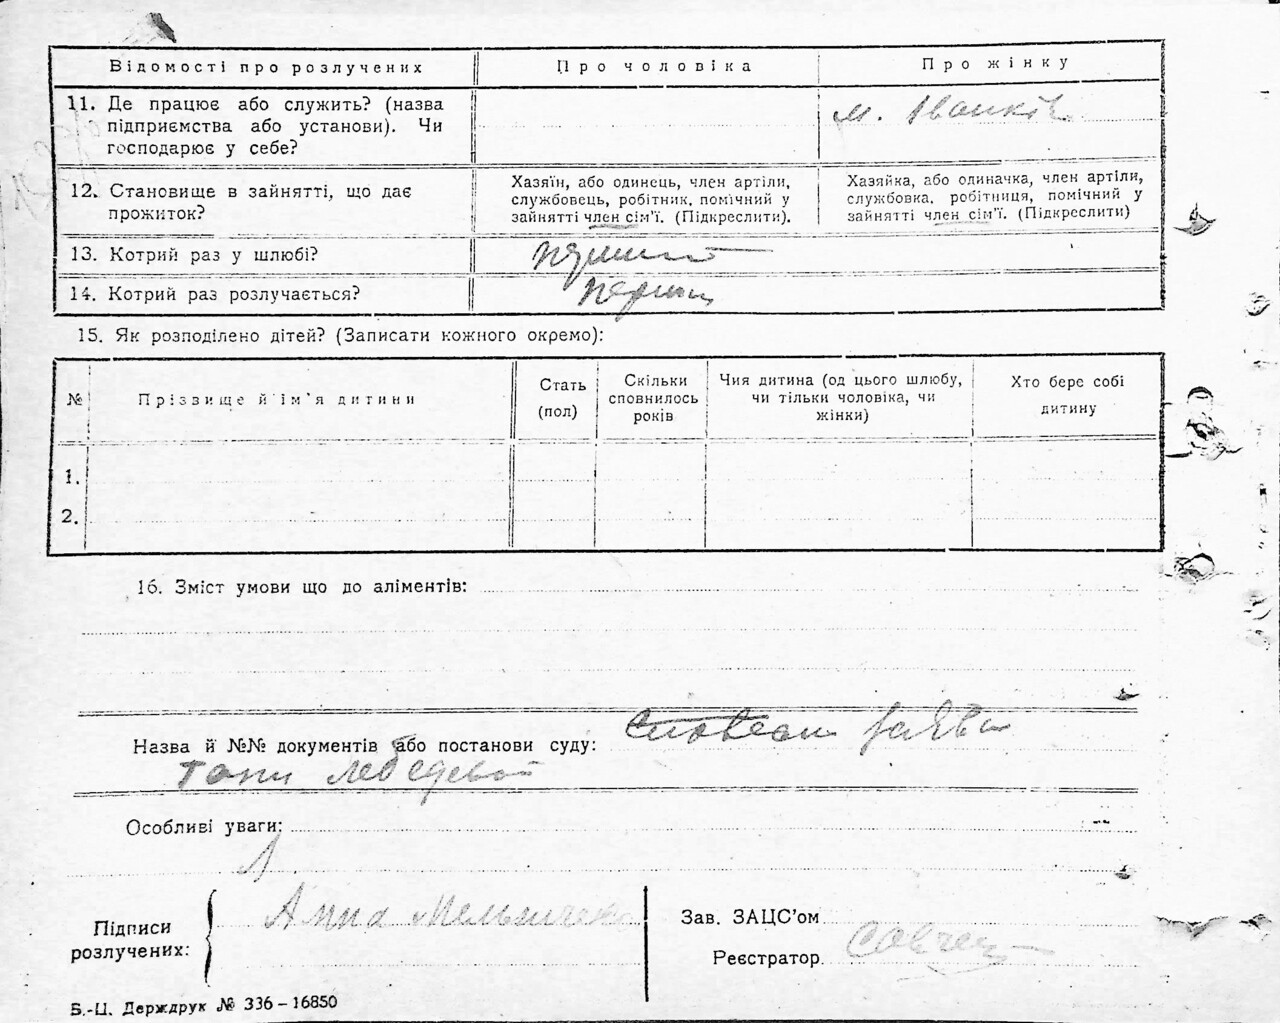 Відомості про розлучених
Про чоловіка
Про жінку
11. Де працює або служить? (назва
підприємства або установи). Чи
господарює у себе?
м. Іванків
12. Становище в зайнятті, що дає
прожиток?
Хазяїн, або одинець, член артіли,
службовець, робітник, помічний у
зайнятті член сім'ї. (Підкреслити).
Хазяйка, або одиначка, член артіли,
службовка, робітниця, помічний у
зайнятті член сім'ї. (Підкреслити)
13. Котрий раз у шлюбі?
14. Котрий раз розлучається?
15. Як розподілено дітей? (Записати кожного окремо):
№
Прізвище й ім'я дитини
Стать
(пол)
Скільки
сповнилось
років
Чия дитина (од цього шлюбу,
чи тільки чоловіка, чи
жінки)
Хто бере собі
дитину
1.
2.
16. Зміст умови що до аліментів:
Назва й №№ документів або постанови суду: заява
Особливі уваги:
Підписи
розлучених:
Анна
Зав. ЗАЦС'ом
Реєстратор
Б.-Ц. Держдрук № 336–16850